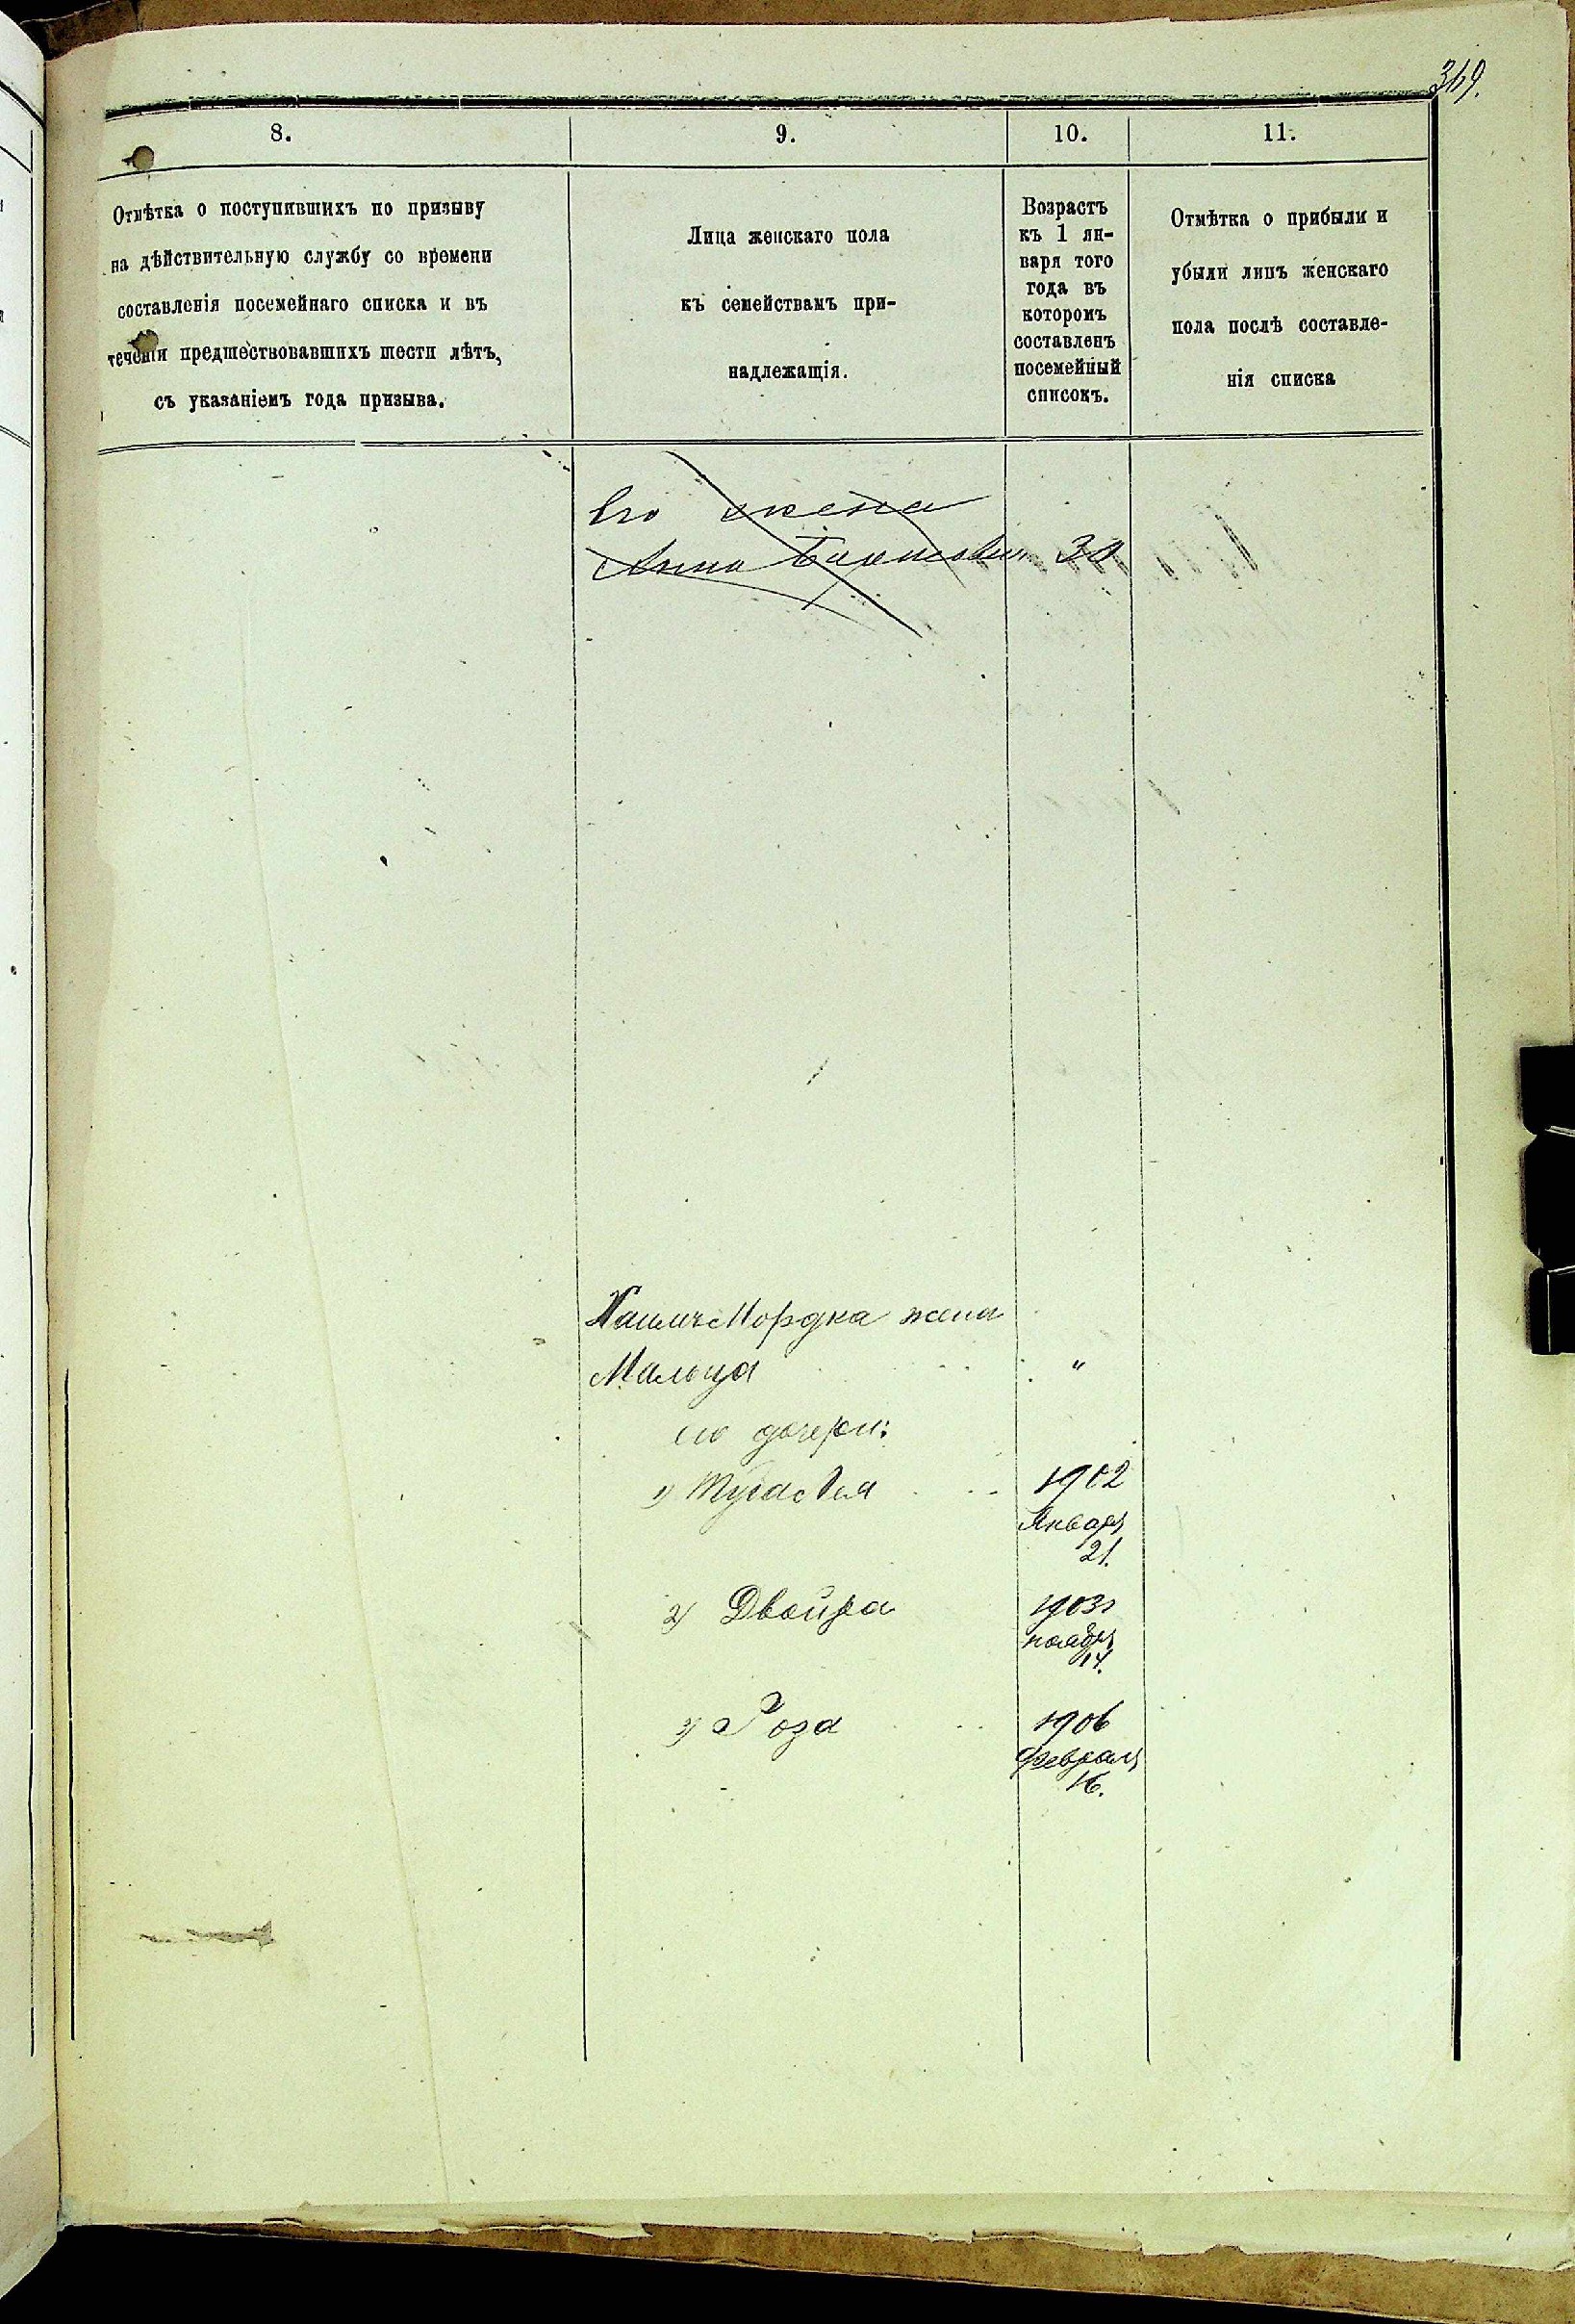 349.
8.
9.
10.
11.
Отмѣтка о поступившихъ по призыву
на дѣйствительную службу со времени
составленія посемейнаго списка и въ
теченіи предшествовавшихъ шести лѣтъ,
съ указаніемъ года призыва.
Лица женскаго пола
къ семействамъ при-
надлежащія.
Возрастъ
къ 1 ян-
варя того
года въ
которомъ
составленъ
посемейный
списокъ.
Отмѣтка о прибыли и
убыли лицъ женскаго
пола послѣ составле-
нія списка
Его жена
Анна 30
Мордка жена
Мальца "
его дочери:
1) 1902
Января
21.
2) Двойра 1903г
ноября
14.
3) Роза 1906
Февраля
16.